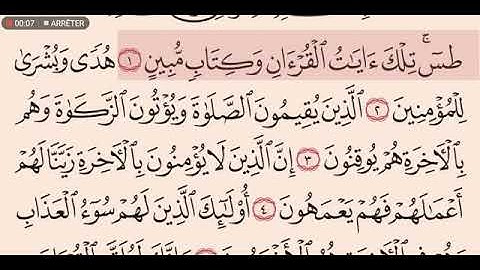 00:07 ARRÊTER
طسٓۚ تِلۡكَ ءَايَٰتُ ٱلۡقُرۡءَانِ وَكِتَابٖ مُّبِينٍ ١ هُدٗى وَبُشۡرَىٰ
لِلۡمُؤۡمِنِينَ ٢ ٱلَّذِينَ يُقِيمُونَ ٱلصَّلَوٰةَ وَيُؤۡتُونَ ٱلزَّكَوٰةَ وَهُم
بِٱلۡأٓخِرَةِ هُمۡ يُوقِنُونَ ٣ إِنَّ ٱلَّذِينَ لَا يُؤۡمِنُونَ بِٱلۡأٓخِرَةِ زَيَّنَّا لَهُمۡ
أَعۡمَٰلَهُمۡ فَهُمۡ يَعۡمَهُونَ ٤ أُوْلَٰٓئِكَ ٱلَّذِينَ لَهُمۡ سُوٓءُ ٱلۡعَذَابِ